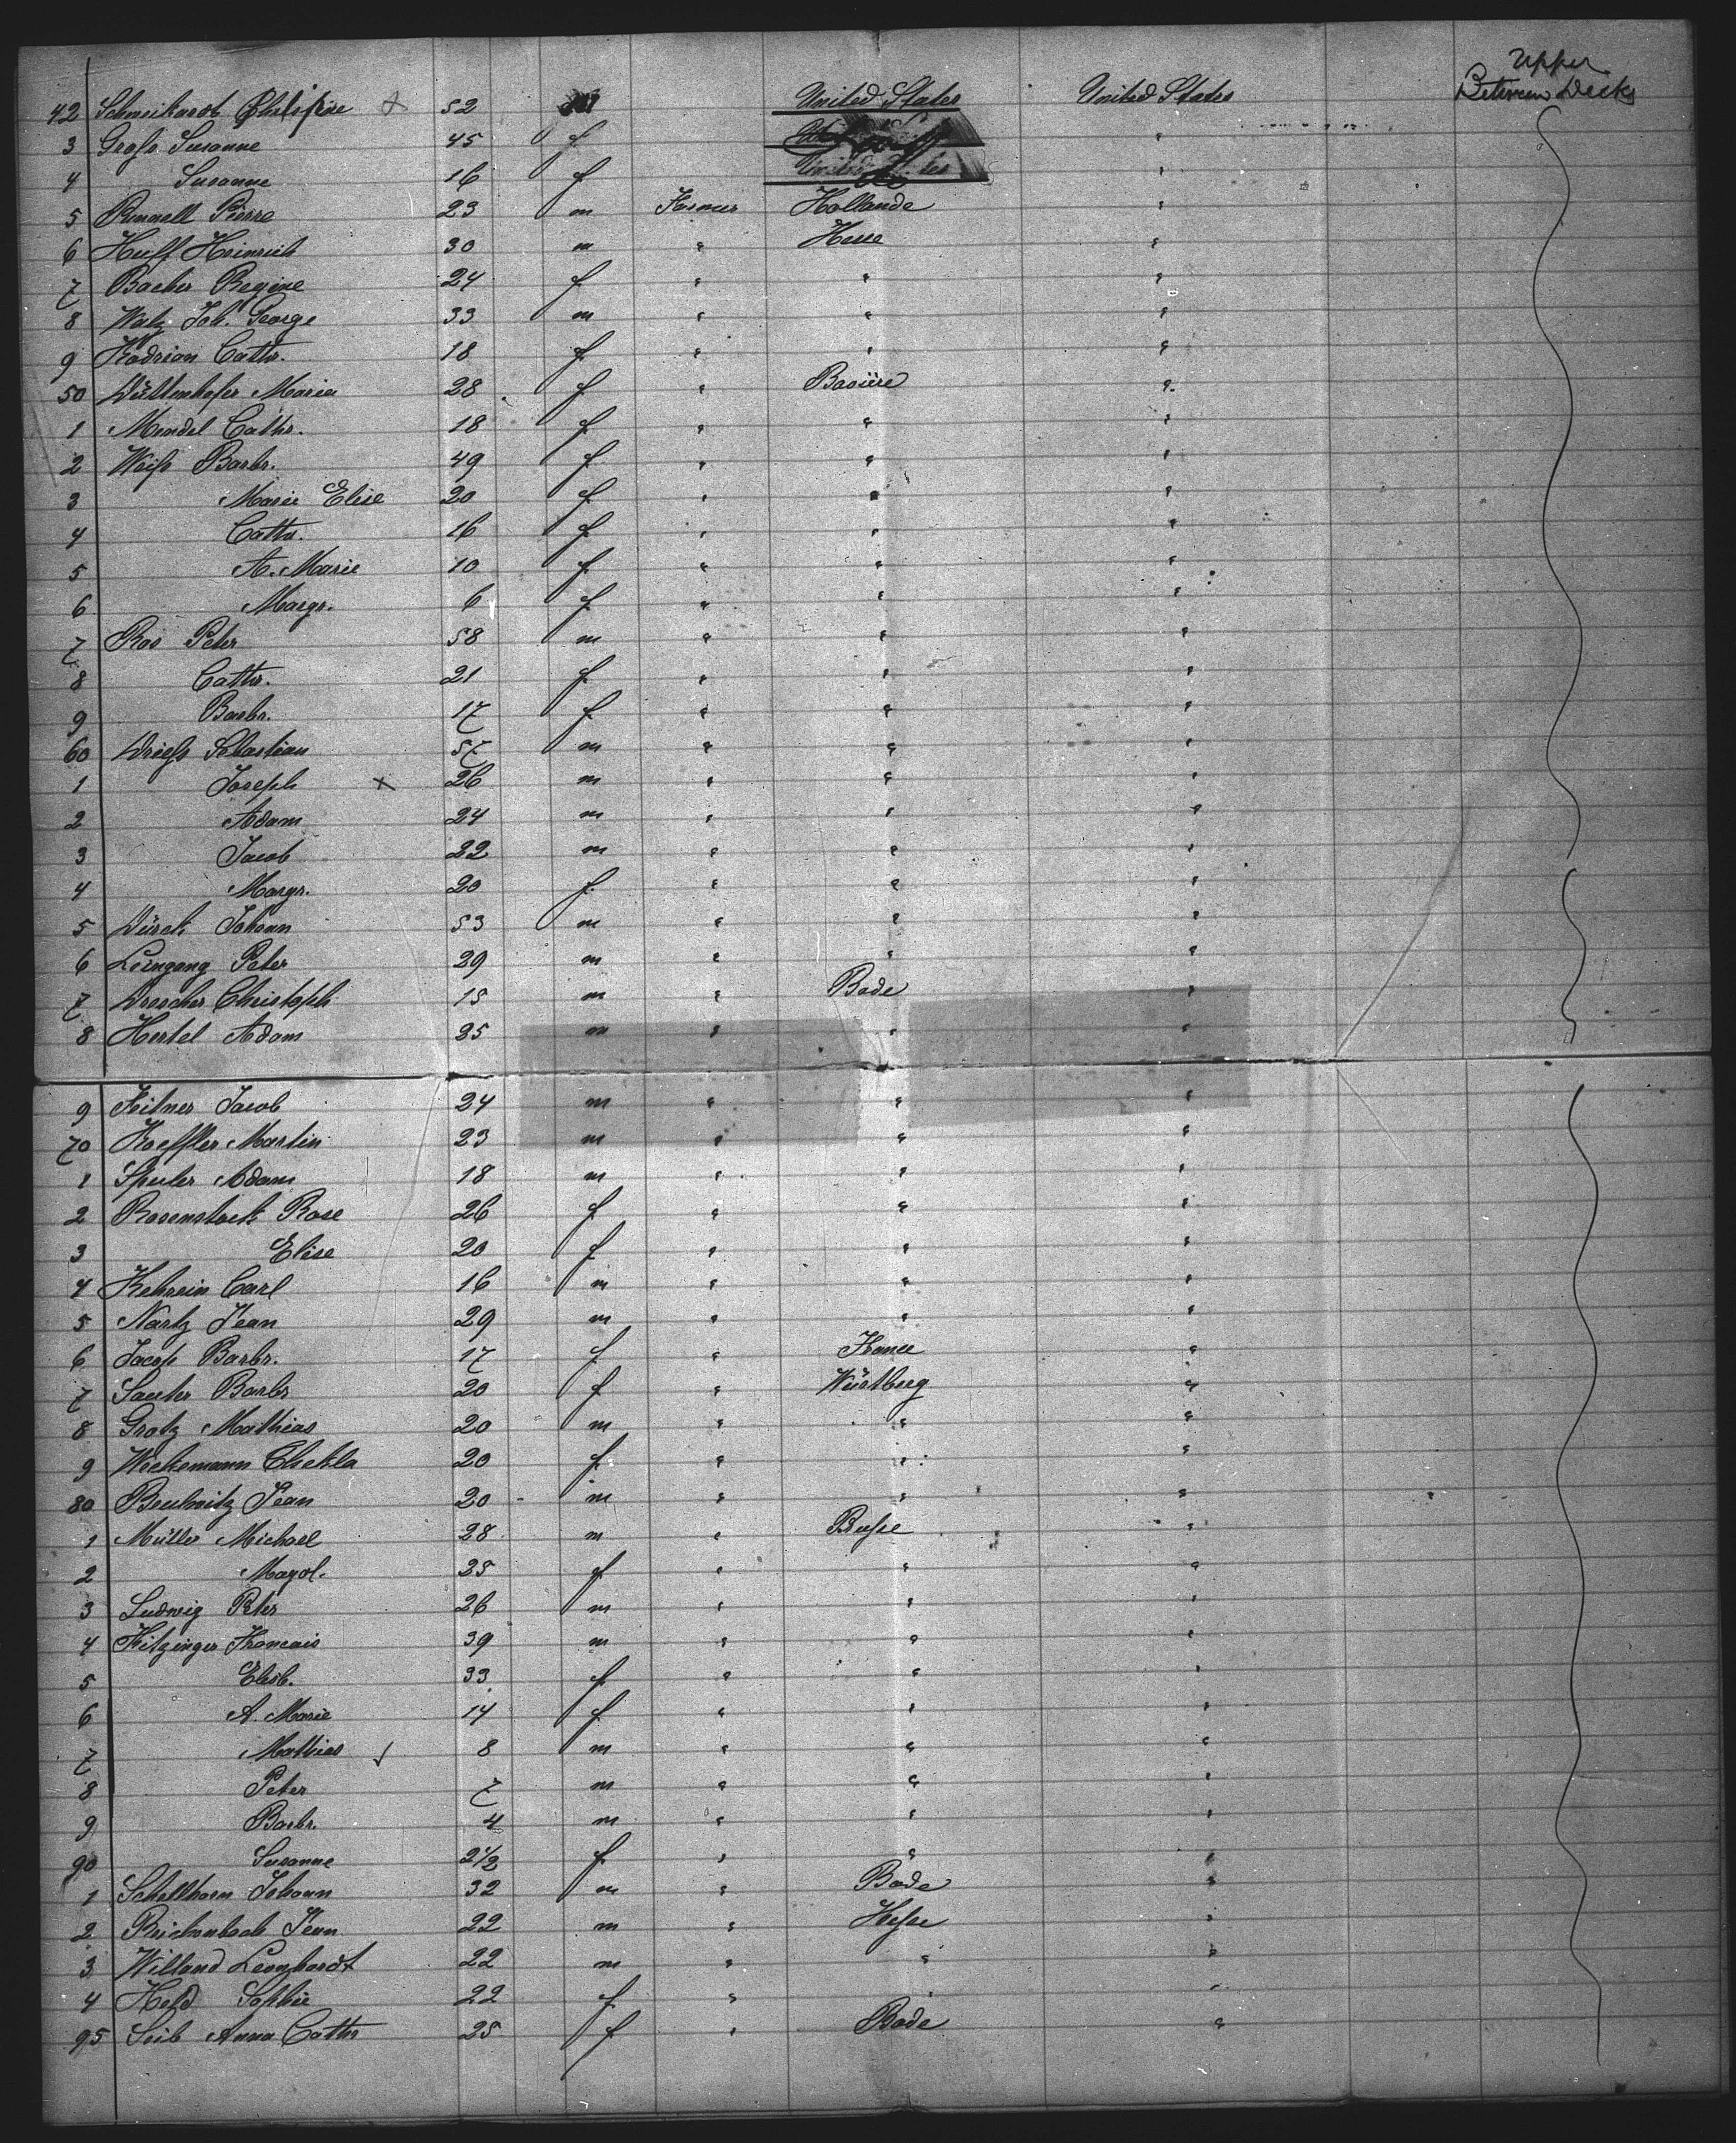 Upper
42 Schweikardt Philippe x 52 United States United States Between Decks
3 Groß Susanne 45 f "
4 Susanne 16 f United States "
5 Rummell Pierre 23 m Farmer Hollande "
6 Huff Heinrich 30 m " Hesse "
7 Bacher Regine 24 f " " "
8 Walz Joh. George 33 m " " "
9 Kadrian Cathr. 18 f " " "
50 Düttenhofer Maria 28 f " Bavière "
1 Mendel Cathr. 18 f " " "
2 Weiß Barbr. 49 f " " "
3 Marie Elise 20 f " " "
4 Cathr. 16 f " " "
5 A. Marie 10 f " " "
6 Margr. 6 f " " "
7 Ros Peter 58 m " " "
8 Cathr. 21 f " " "
9 Barbr. 17 f " " "
60 Drieß Sebastian 57 m " " "
1 Joseph x 26 m " " "
2 Adam 24 m " " "
3 Jacob 22 m " " "
4 Margr. 20 f " " "
5 Dürck Johann 53 m " " "
6 Leingang Peter 29 m " " "
7 Drescher Christoph 15 m " Bade "
8 Hertel Adam 25 m " " "
9 Feitner Jacob 24 m " " "
70 Koeffler Martin 23 m " " "
1 Spuler Adam 18 m " " "
2 Rosenstock Rose 26 f " " "
3 Elise 20 f " " "
4 Kehrein Carl 16 m " " "
5 Nartz Jean 29 m " " "
6 Jacob Barbr. 17 f " France "
7 Sauter Barbr 20 f " Würtberg "
8 Gratz Mathias 20 m " " "
9 Weckemann Thekla 20 f " " "
80 Jean 20 m " " "
1 Müller Michael 28 m " "
2 Magd. 25 f " " "
3 Ludwig Peter 26 m " " "
4 Kitzinger Francais 39 m " " "
5 Elisb. 33 f " " "
6 A. Marie 14 f " " "
7 Mathias 8 m " " "
8 Peter 7 m " " "
9 Barbr. 4 m " " "
90 Susanne 2 1/2 f " " "
1 Schellhorn Johann 32 m " Bade "
2 Reichenbach Jean 22 m " Heße "
3 Willand Leonhardt 22 m " " "
4 Held Sophie 22 f " " "
95 Seib Anna Cathr 25 f " Bade "